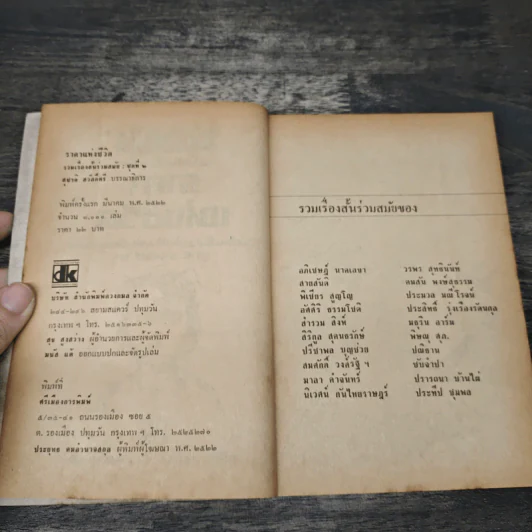 ราคาแห่งชีวิต
รวมเรื่องสั้นร่วมสมัย : ชุดที่ ๒
สุชาติ สวัสดิ์ศรี บรรณาธิการ
พิมพ์ครั้งแรก มีนาคม พ.ศ. ๒๕๒๒
จำนวน ๓,๐๐๐ เล่ม
ราคา ๒๒ บาท
dk
บริษัท สำนักพิมพ์ดวงกมล จำกัด
๒๔๔-๒๔๖ สยามสแควร์ ปทุมวัน
กรุงเทพ ฯ โทร. ๒๕๑๖๓๓๕-๖
สุข สูงสว่าง ผู้อำนวยการและผู้จัดพิมพ์
มนัส แด้ ออกแบบปกและจัดรูปเล่ม
พิมพ์ที่
ศรีเมืองการพิมพ์
๕/๓๕-๔๑ ถนนรองเมือง ซอย ๕
ต. รองเมือง ปทุมวัน กรุงเทพ ฯ โทร.
ประยุทธ ผู้พิมพ์ผู้โฆษณา พ.ศ. ๒๕๒๒
รวมเรื่องสั้นร่วมสมัยของ
อภิเชษฎ์ นาคเลขา
สายสันติ
พิเชียร
อัศศิริ ธรรมโชติ
สำรวม สิงห์
ศิริกุล
ปรีชาพล บุญช่วย
สมศักดิ์ วงศ์รัฐ ฯ
มาลา คำจันทร์
นิเวศน์ กันไทยราษฎร์
วรพร สุทธินันท์
คมสัน พงษ์สุธรรม
ประมวล มณีโรจน์
ประสิทธิ์ รุ่งเรืองรัตนกุล
มอริน
พิษณุ ศุภ.
ปณิธาน
ปรารถนา บ้านใต้
ประทีป ชุมพล